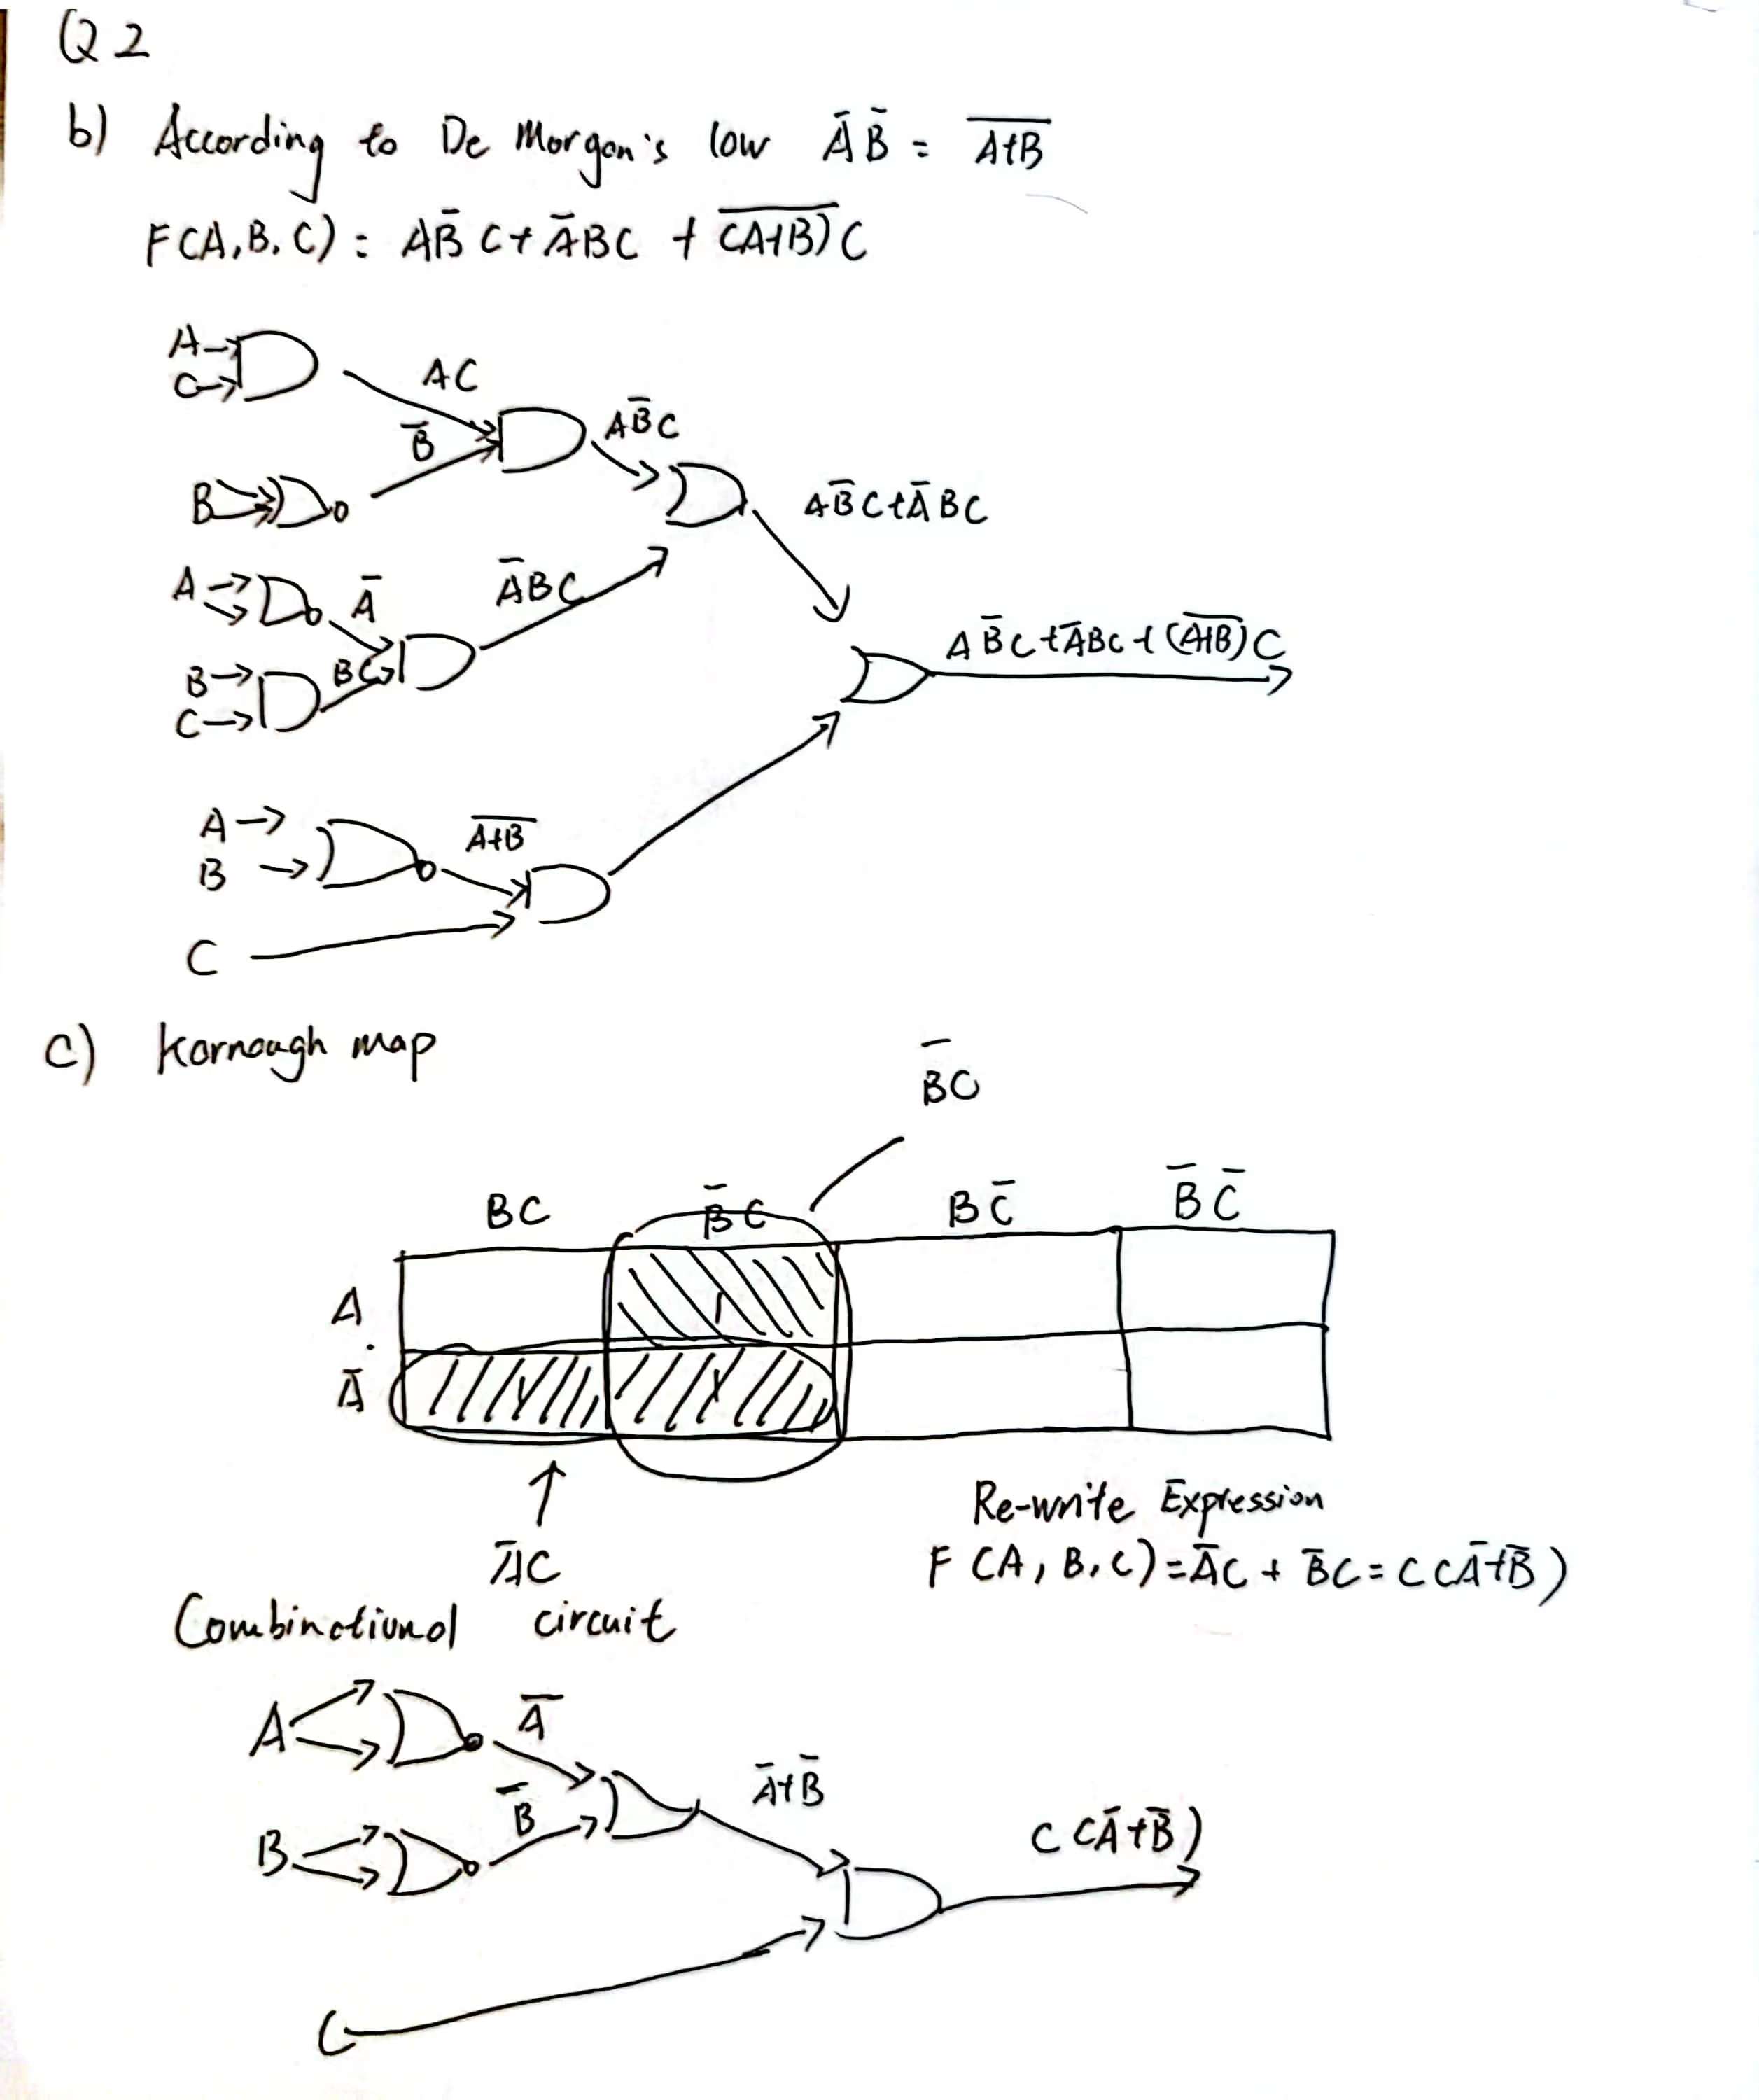 Q2
b) According to De Morgan's low Ā B̄ = \overline{A+B}
F(A,B,C) = AB̄C + ĀBC + \overline{(A+B)}C
A
C
AC
B̄
AB̄C
B
AB̄C+ĀBC
A
Ā
ĀBC
B
C
BC
AB̄C+ĀBC+(\overline{A+B})C
A
B
\overline{A+B}
C
c) Kornough map
B̄C
BC B̄C BC̄ B̄C̄
A
Ā
ĀC
Re-write Expression
F(A,B,C)=ĀC + B̄C = C(Ā+B̄)
Combinotionol circuit
A
Ā
Ā+B̄
B
B̄
C(Ā+B̄)
C